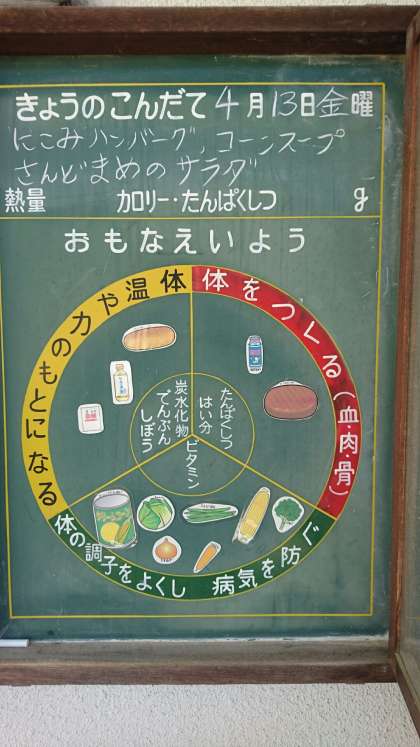 きょうのこんだて 4月13日金曜
にこみハンバーグ, コーンスープ
さんどまめのサラダ
熱量 カロリー・たんぱくしつ g
おもなえいよう
熱や力や温体のもとになる
体をつくる(血・肉・骨)
たんぱくしつ
はい分
炭水化物
でんぷん
しぼう
ビタミン
体の調子をよくし 病気を防ぐ